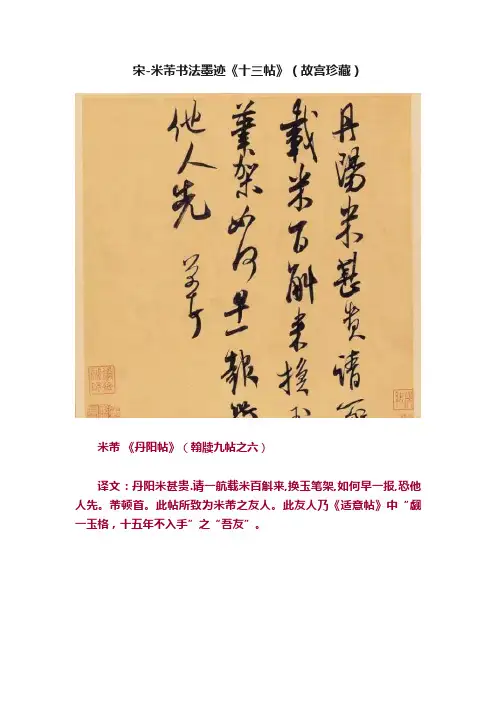 宋-米芾书法墨迹《十三帖》（故宫珍藏）
丹陽米甚貴請一
載米百斛来換玉
筆架如何早一報
他人先 芾頓首
米芾 《丹阳帖》（翰牍九帖之六）
译文：丹阳米甚贵.请一航载米百斛来,换玉笔架,如何早一报,恐他
人先。芾顿首。此帖所致为米芾之友人。此友人乃《适意帖》中“觑
一玉格，十五年不入手”之“吾友”。